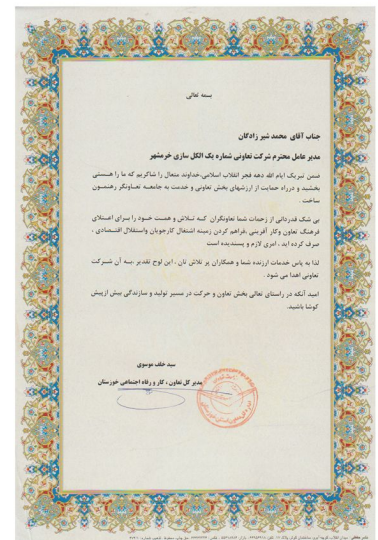 بسمه تعالی
جناب آقای محمد شیرزادگان
مدیر عامل محترم شرکت تعاونی شماره یک الکل سازی خرمشهر
ضمن تبریک ایام الله دهه فجر انقلاب اسلامی،خداوند متعال را شاکریم که ما را هستی
بخشید و درراه حمایت از ارزشهای بخش تعاونی و خدمت به جامعه تعاونگر رهنمون
ساخت .
بی شک قدردانی از زحمات شما تعاونگران که تلاش و همت خود را برای اعتلای
فرهنگ تعاون وکار آفرینی ،فراهم کردن زمینه اشتغال کارجویان واستقلال اقتصادی ،
صرف کرده اید ، امری لازم و پسندیده است
لذا به پاس خدمات ارزنده شما و همکاران پر تلاش تان ، این لوح تقدیر ،به آن شرکت
تعاونی اهدا می شود .
امید آنکه در راستای تعالی بخش تعاون و حرکت در مسیر تولید و سازندگی بیش ازپیش
کوشا باشید.
سید خلف موسوی
مدیر کل تعاون ، کار و رفاه اجتماعی خوزستان